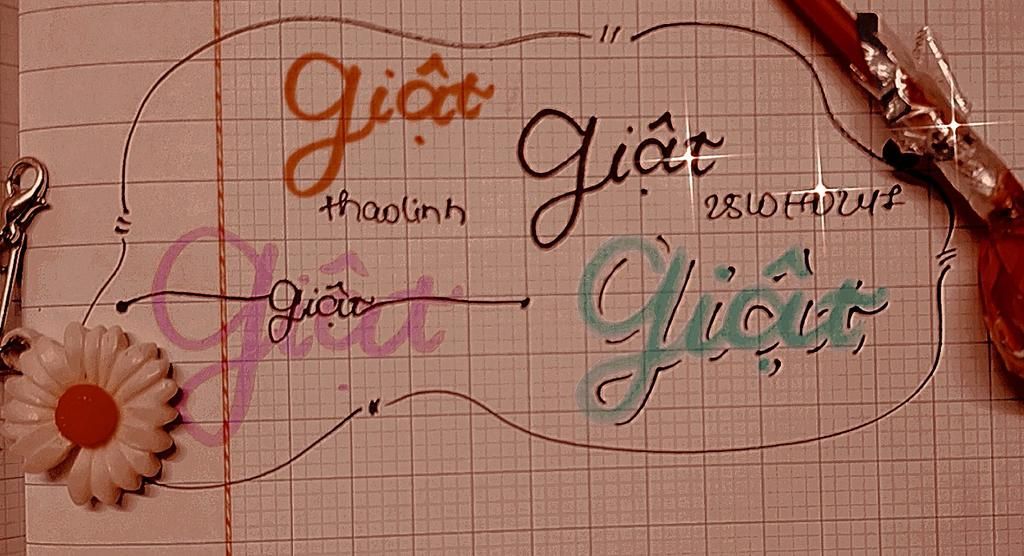 Giật
Giật
thaolinh
Giật
Giật
Giật